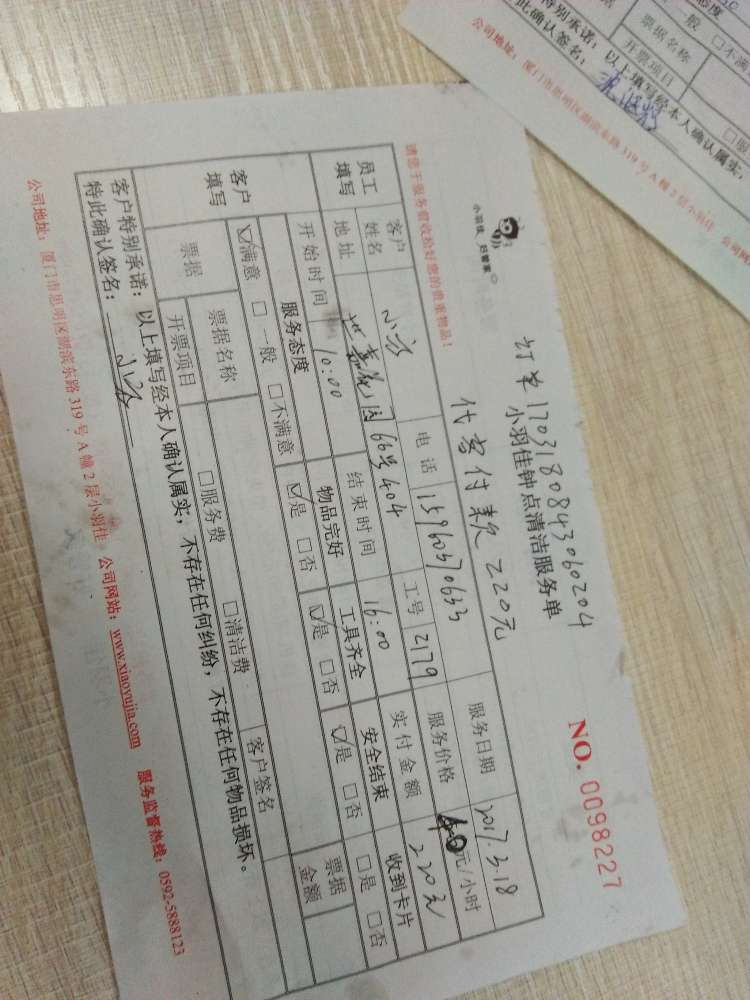 订单 1703180843060204
小羽佳钟点清洁服务单
NO. 0098227
小羽佳 归管家
代客付款 220元
请您于服务前收拾好您的贵重物品!
员工填写
客户姓名 小方 电话 15960570633 服务日期 2017.3.18
地址 嘉花园66号404 工号 2179 服务价格 40元/小时
开始时间 10:00 结束时间 16:00 实付金额 220元
客户填写
服务态度 物品完好 工具齐全 安全结束 收到卡片
☑满意 □一般 □不满意 ☑是 □否 ☑是 □否 ☑是 □否 □是 □否
票据 票据名称 票据金额
开票项目 □服务费 □清洁费 客户签名
客户特别承诺:以上填写经本人确认属实,不存在任何纠纷,不存在任何物品损坏。
特此确认签名:
公司地址:厦门市思明区湖滨东路319号A幢2层小羽佳 公司网站:www.xiaoyujia.com 服务监督热线:0592-5888123
态度
一般 □不满
票据名称
开票项目
□服
特别承诺:以上填写经本人确认属实,
此确认签名:
公司地址:厦门市思明区湖滨东路319号A幢2层小羽佳 公司网